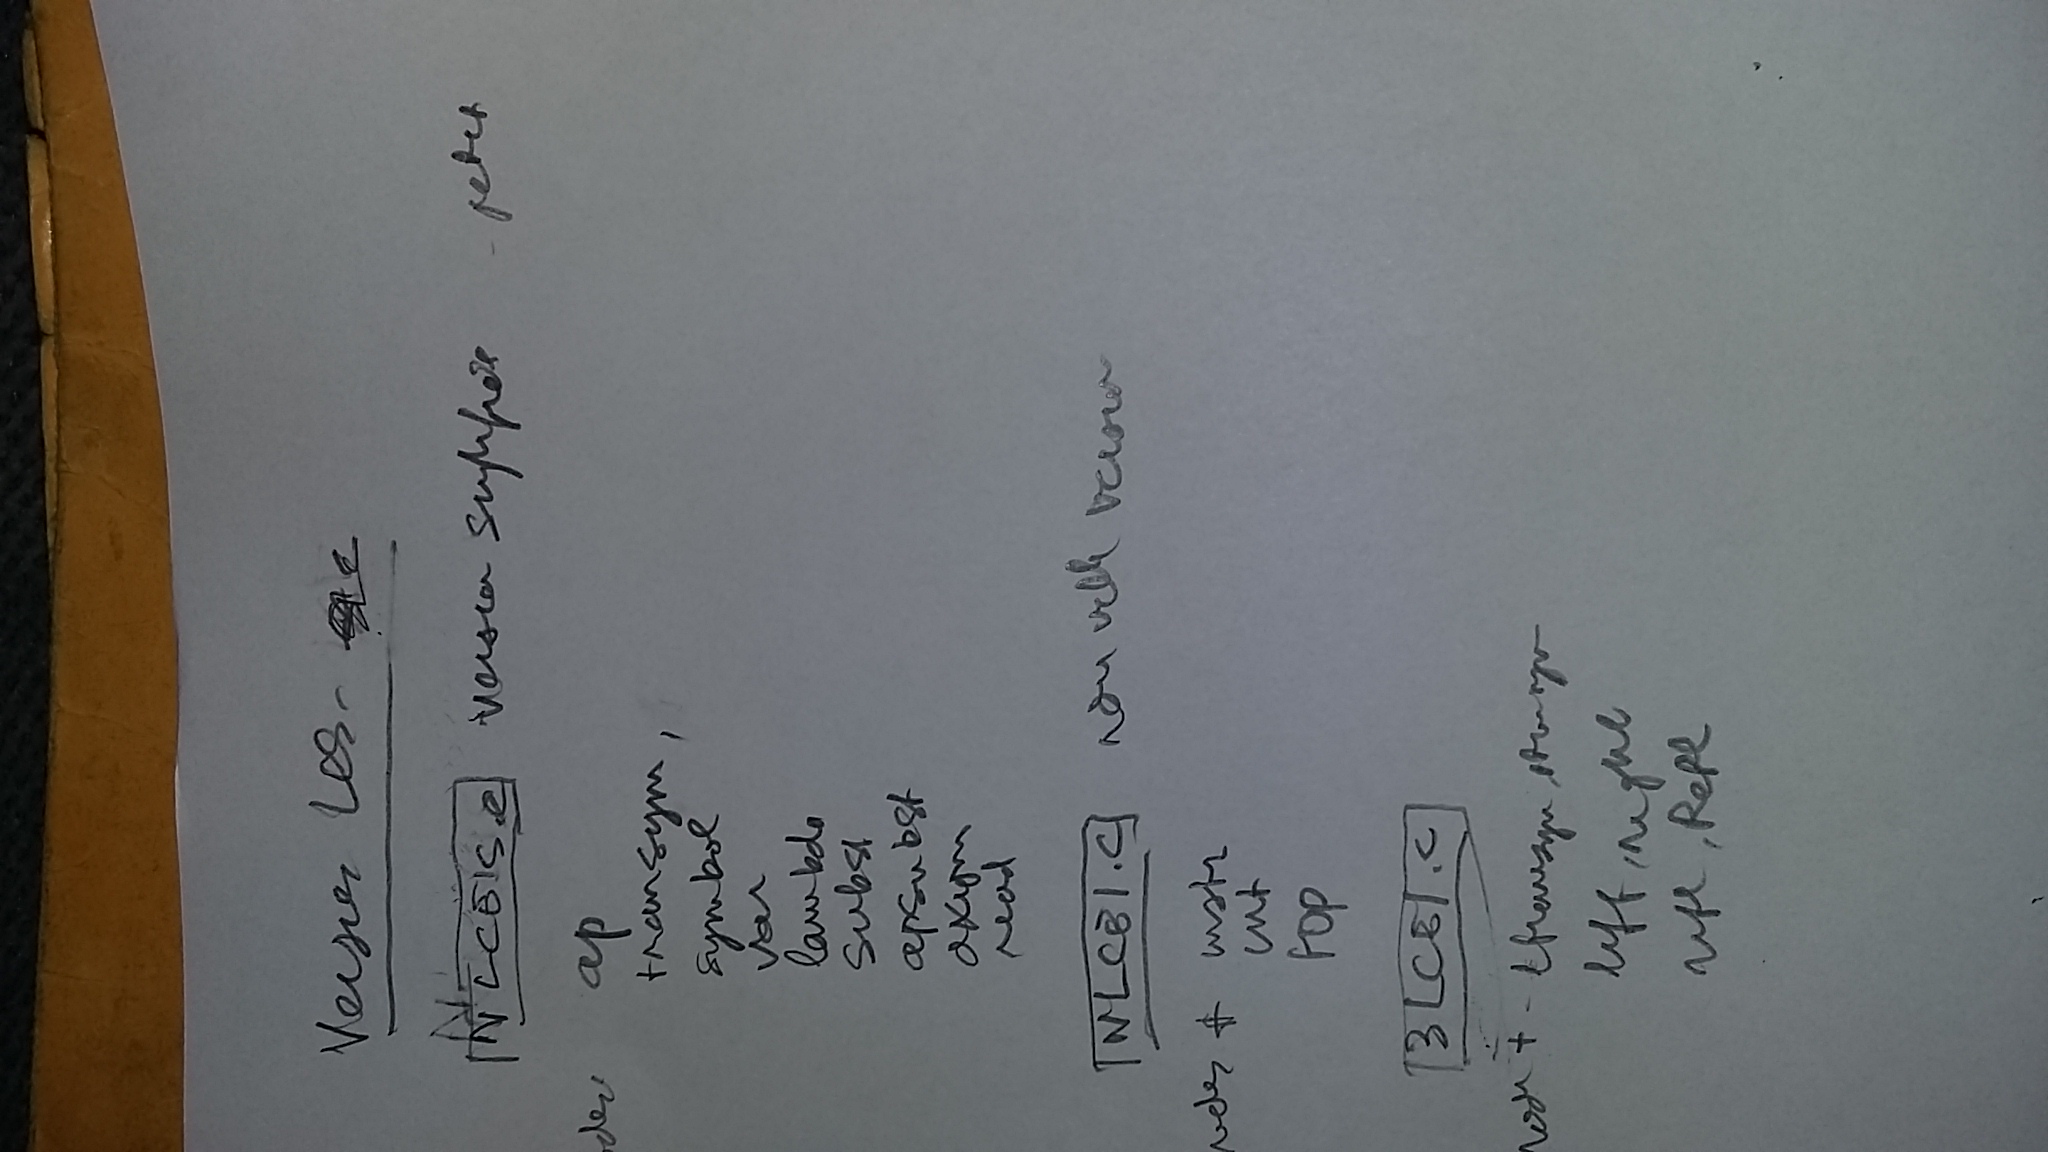 Version LCS-
NLCB1S.c version simplifiée
ap
transym,
symbol
var
lambda
subst
apsubst
axiom
read
NLCB1.c nouvelle version
nodes + instr
int
top
3LCB1.c
node + - ltransym, rtransym
left, right
refl, Refl